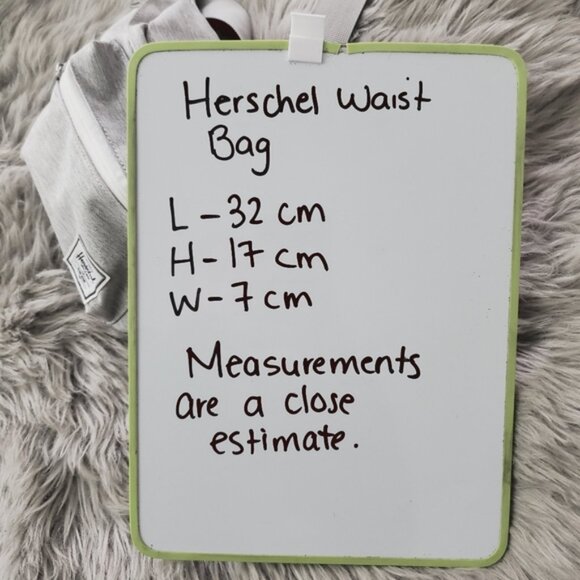 Herschel Waist
Bag
L - 32 cm
H - 17 cm
W - 7 cm
Measurements
are a close
estimate.
Herschel